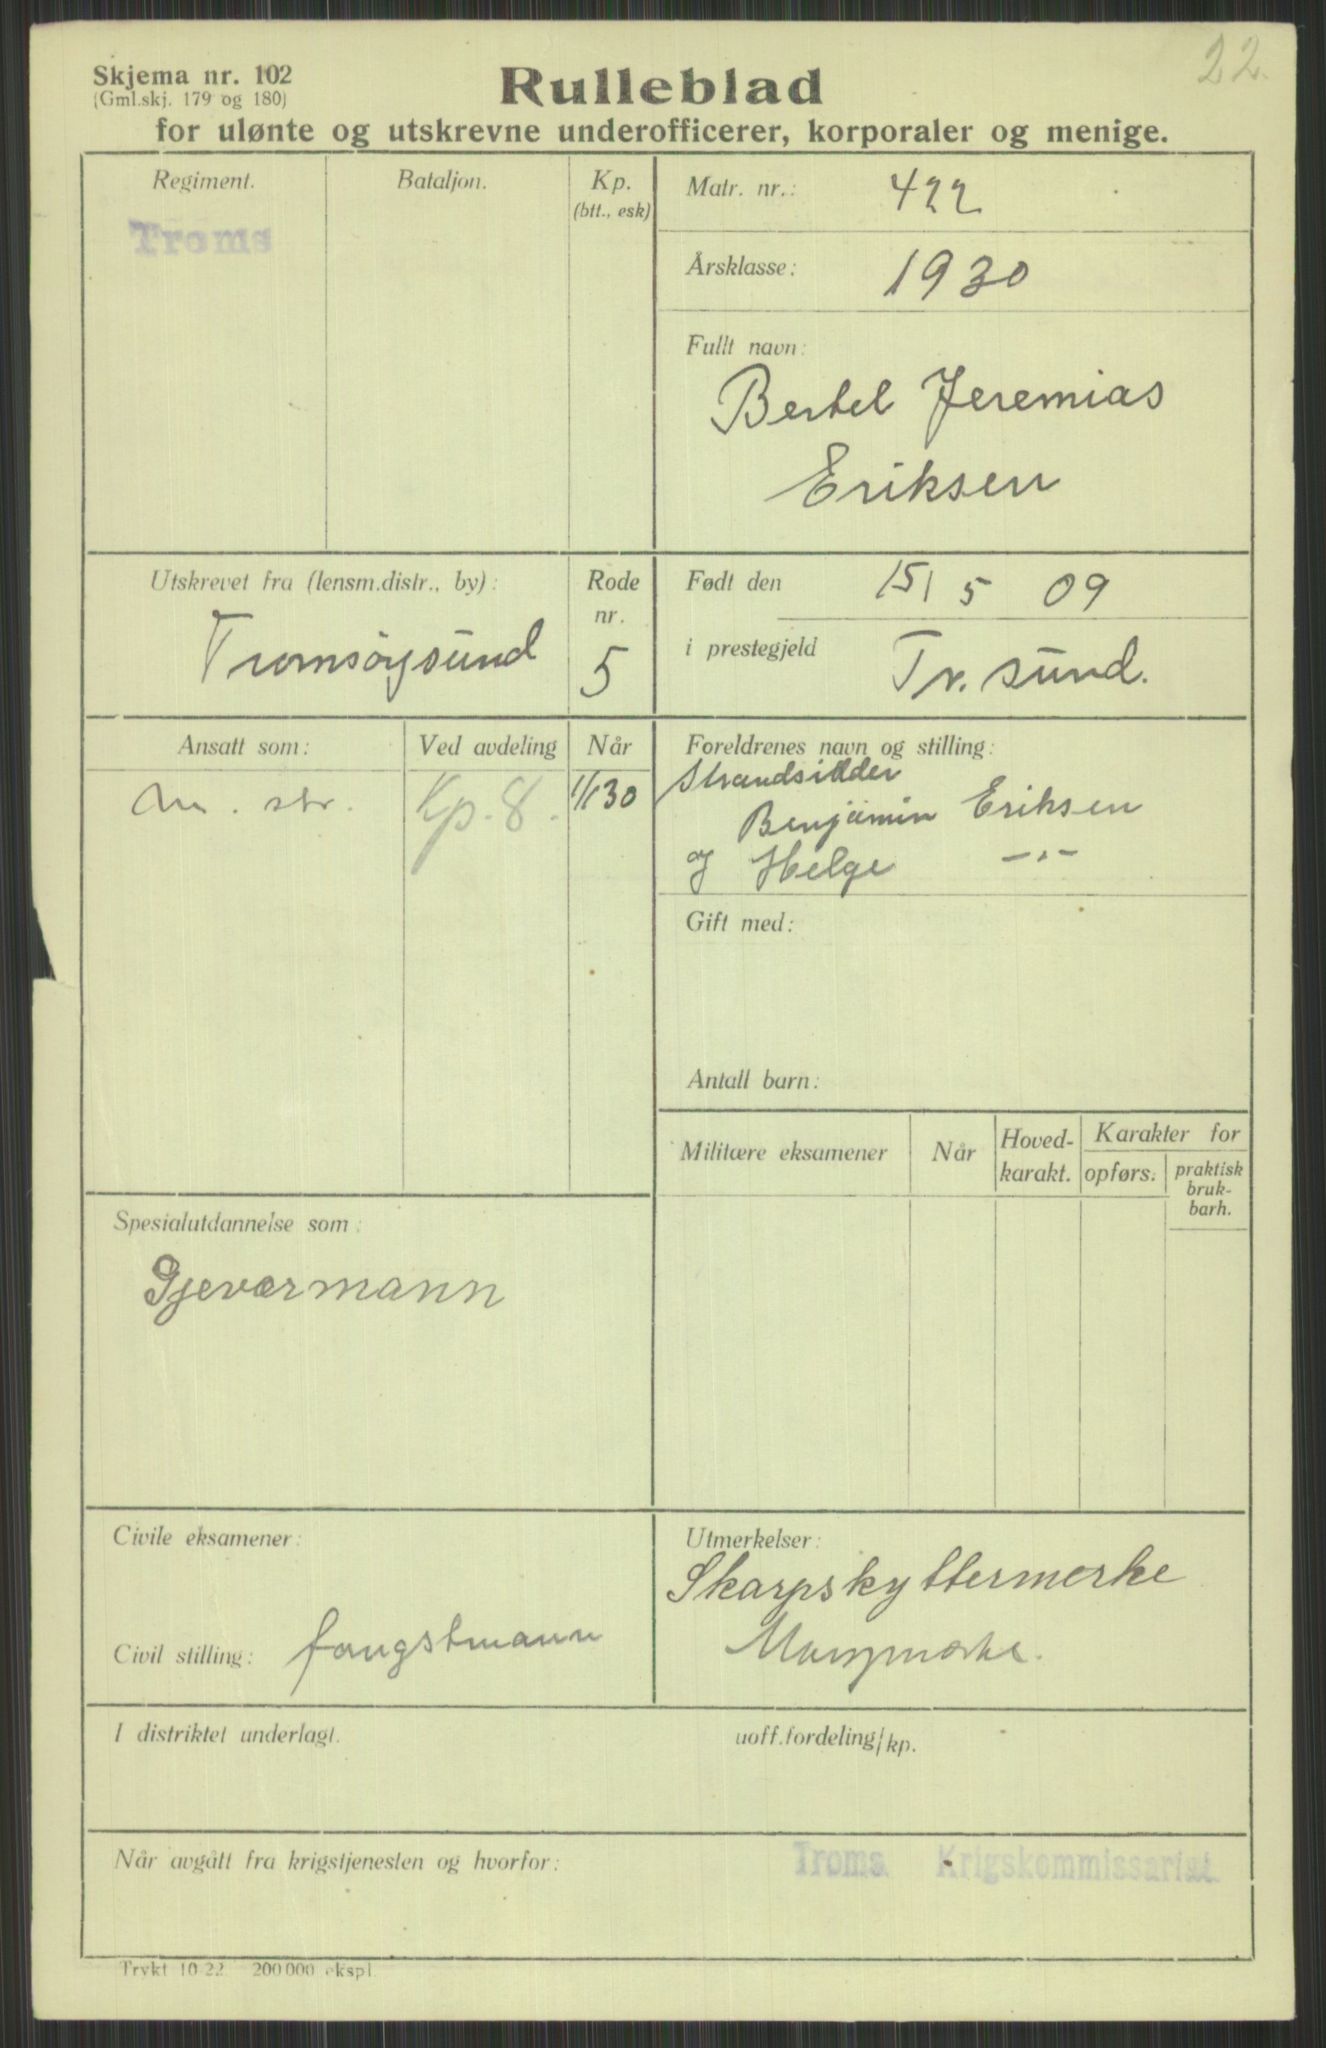 22.
Skjema nr. 102
(Gml.skj. 179 og 180)
Rulleblad
for ulønte og utskrevne underofficerer, korporaler og menige.
Regiment.
Troms
Bataljon.
Kp.
(btt., esk)
Matr. nr.: 422
Årsklasse: 1930
Fullt navn:
Bertel Jeremias
Eriksen
Utskrevet fra (lensm.distr., by):
Tromsöysund
Rode
nr.
5
Født den 15/5 09
i prestegjeld Tr. sund.
Ansatt som:
Ved avdeling
Når
M. str.
Kp. 8.
1/1 30
Foreldrenes navn og stilling:
Strandsidder
Benjamin Eriksen
og Helge -"-
Gift med:
Antall barn:
Militære eksamener
Når
Hoved-
karakt.
Karakter for
opførs.
praktisk
bruk-
barh.
Spesialutdannelse som:
Gjeværmann
Civile eksamener:
Civil stilling: fangstmann
Utmerkelser:
Skarpskyttermerke
I distriktet underlagt.
uoff.fordeling/kp.
Når avgått fra krigstjenesten og hvorfor:
Troms Krigskommissariat
Trykt 10-22 200 000 ekspl.